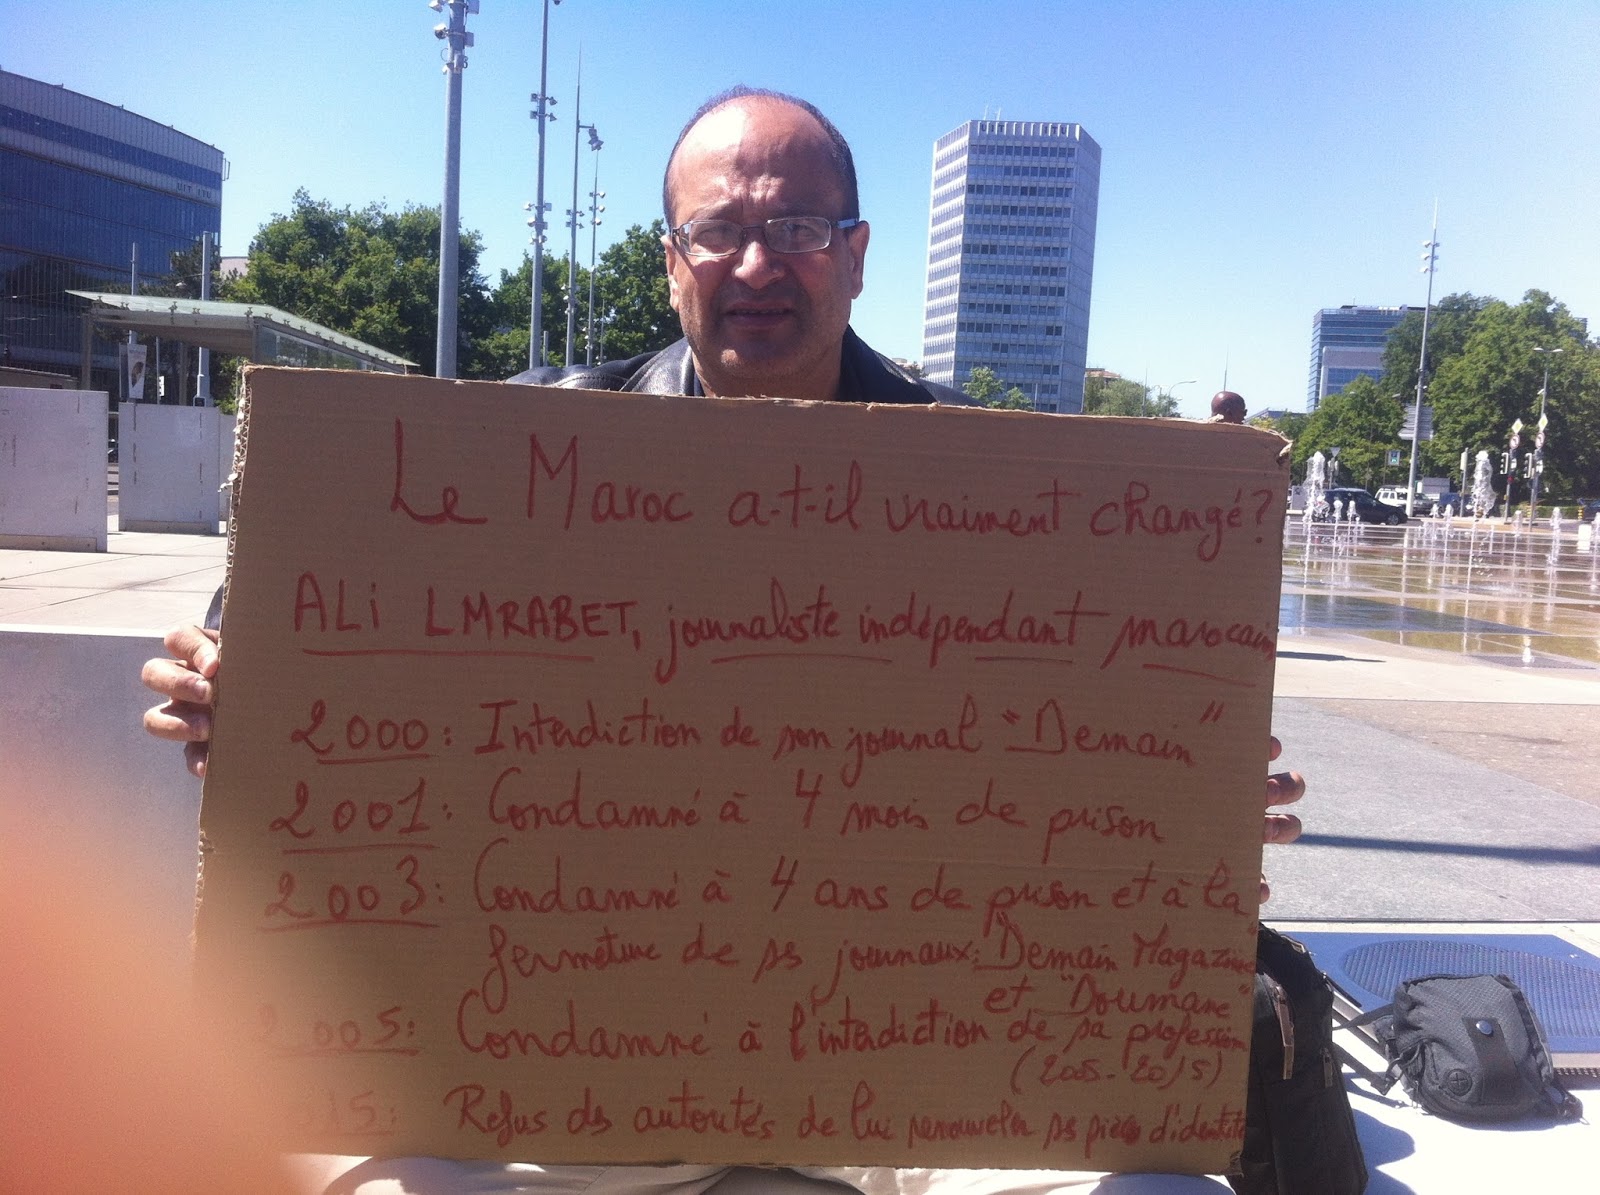 UIT ITU
Le Maroc a-t-il vraiment changé?
ALi LMRABET, journaliste indépendant marocain
2000: Interdiction de son journal "Demain"
2001: Condamné à 4 mois de prison
2003: Condamné à 4 ans de prison et à la
fermeture de ses journaux: "Demain Magazine"
et "Doumane"
2005: Condamné à l'interdiction de sa profession
(2005-2015)
2015: Refus des autorités de lui renouveler ses pièces d'identité